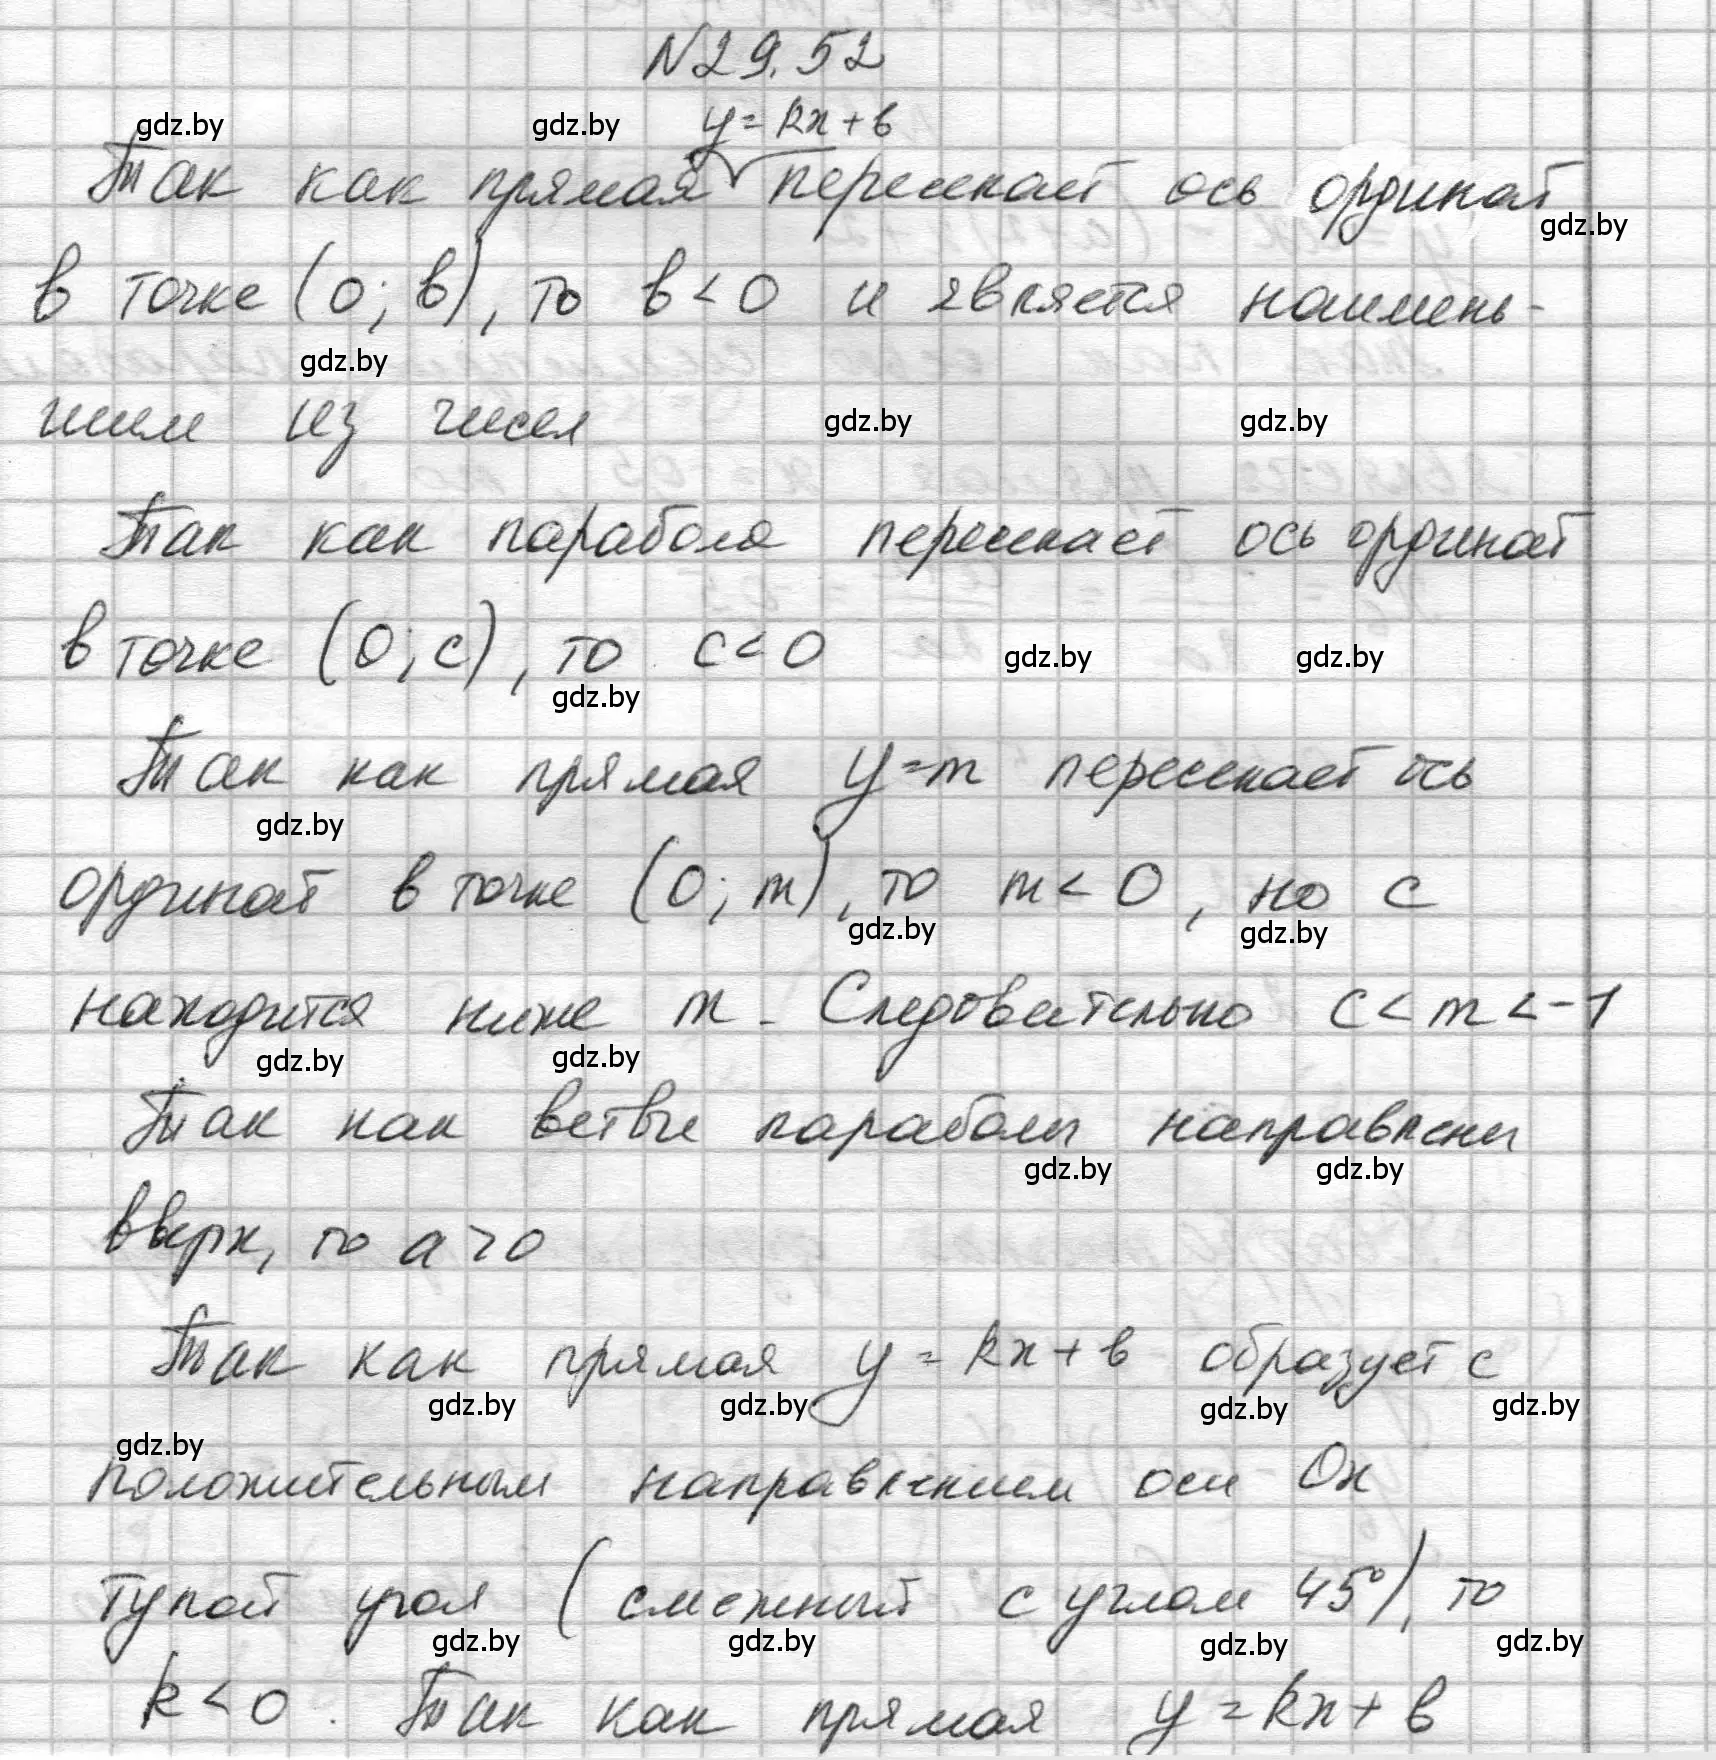 N29.52
gdz.by gdz.by y=kx+b
Так как прямая пересекает ось ординат
gdz.by
в точке (0; b), то b<0 и является наимень-
gdz.by
шим из чисел gdz.by gdz.by
Так как парабола пересекает ось ординат
в точке (0; c), то c<0 gdz.by gdz.by
gdz.by
Так как прямая y=m пересекает ось
gdz.by
ординат в точке (0; m), то m<0, но c
gdz.by gdz.by
находится ниже m. Следовательно c<m<-1
gdz.by gdz.by
Так как ветви параболы направлены
gdz.by gdz.by
вверх, то a>0
Так как прямая y=kx+b образует с
gdz.by gdz.by gdz.by gdz.by
gdz.by
положительным направлением оси Ox
тупой угол (смежный с углом 45°), то
gdz.by gdz.by gdz.by gdz.by
k<0. Так как прямая y=kx+b